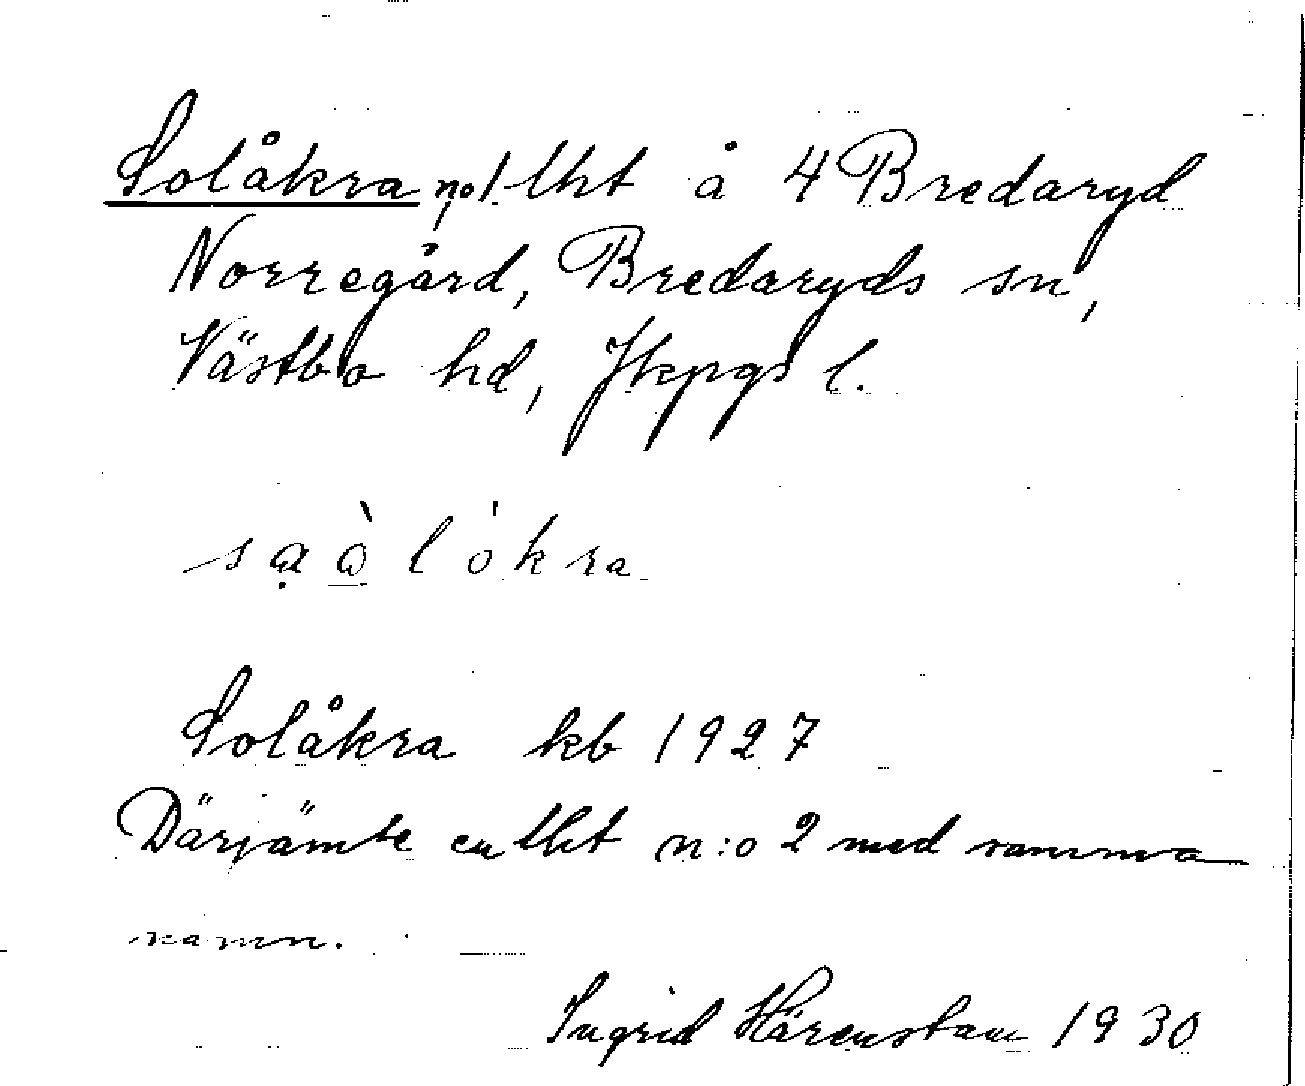 Solåkra no 1 lht å 4 Bredaryd
Norregård, Bredaryds sn,
Västbo hd, Jkpgs l.
Solåkra kb 1927
Därjämte en lht n:o 2 med samma
namn.
Ingrid Härenstam 1930